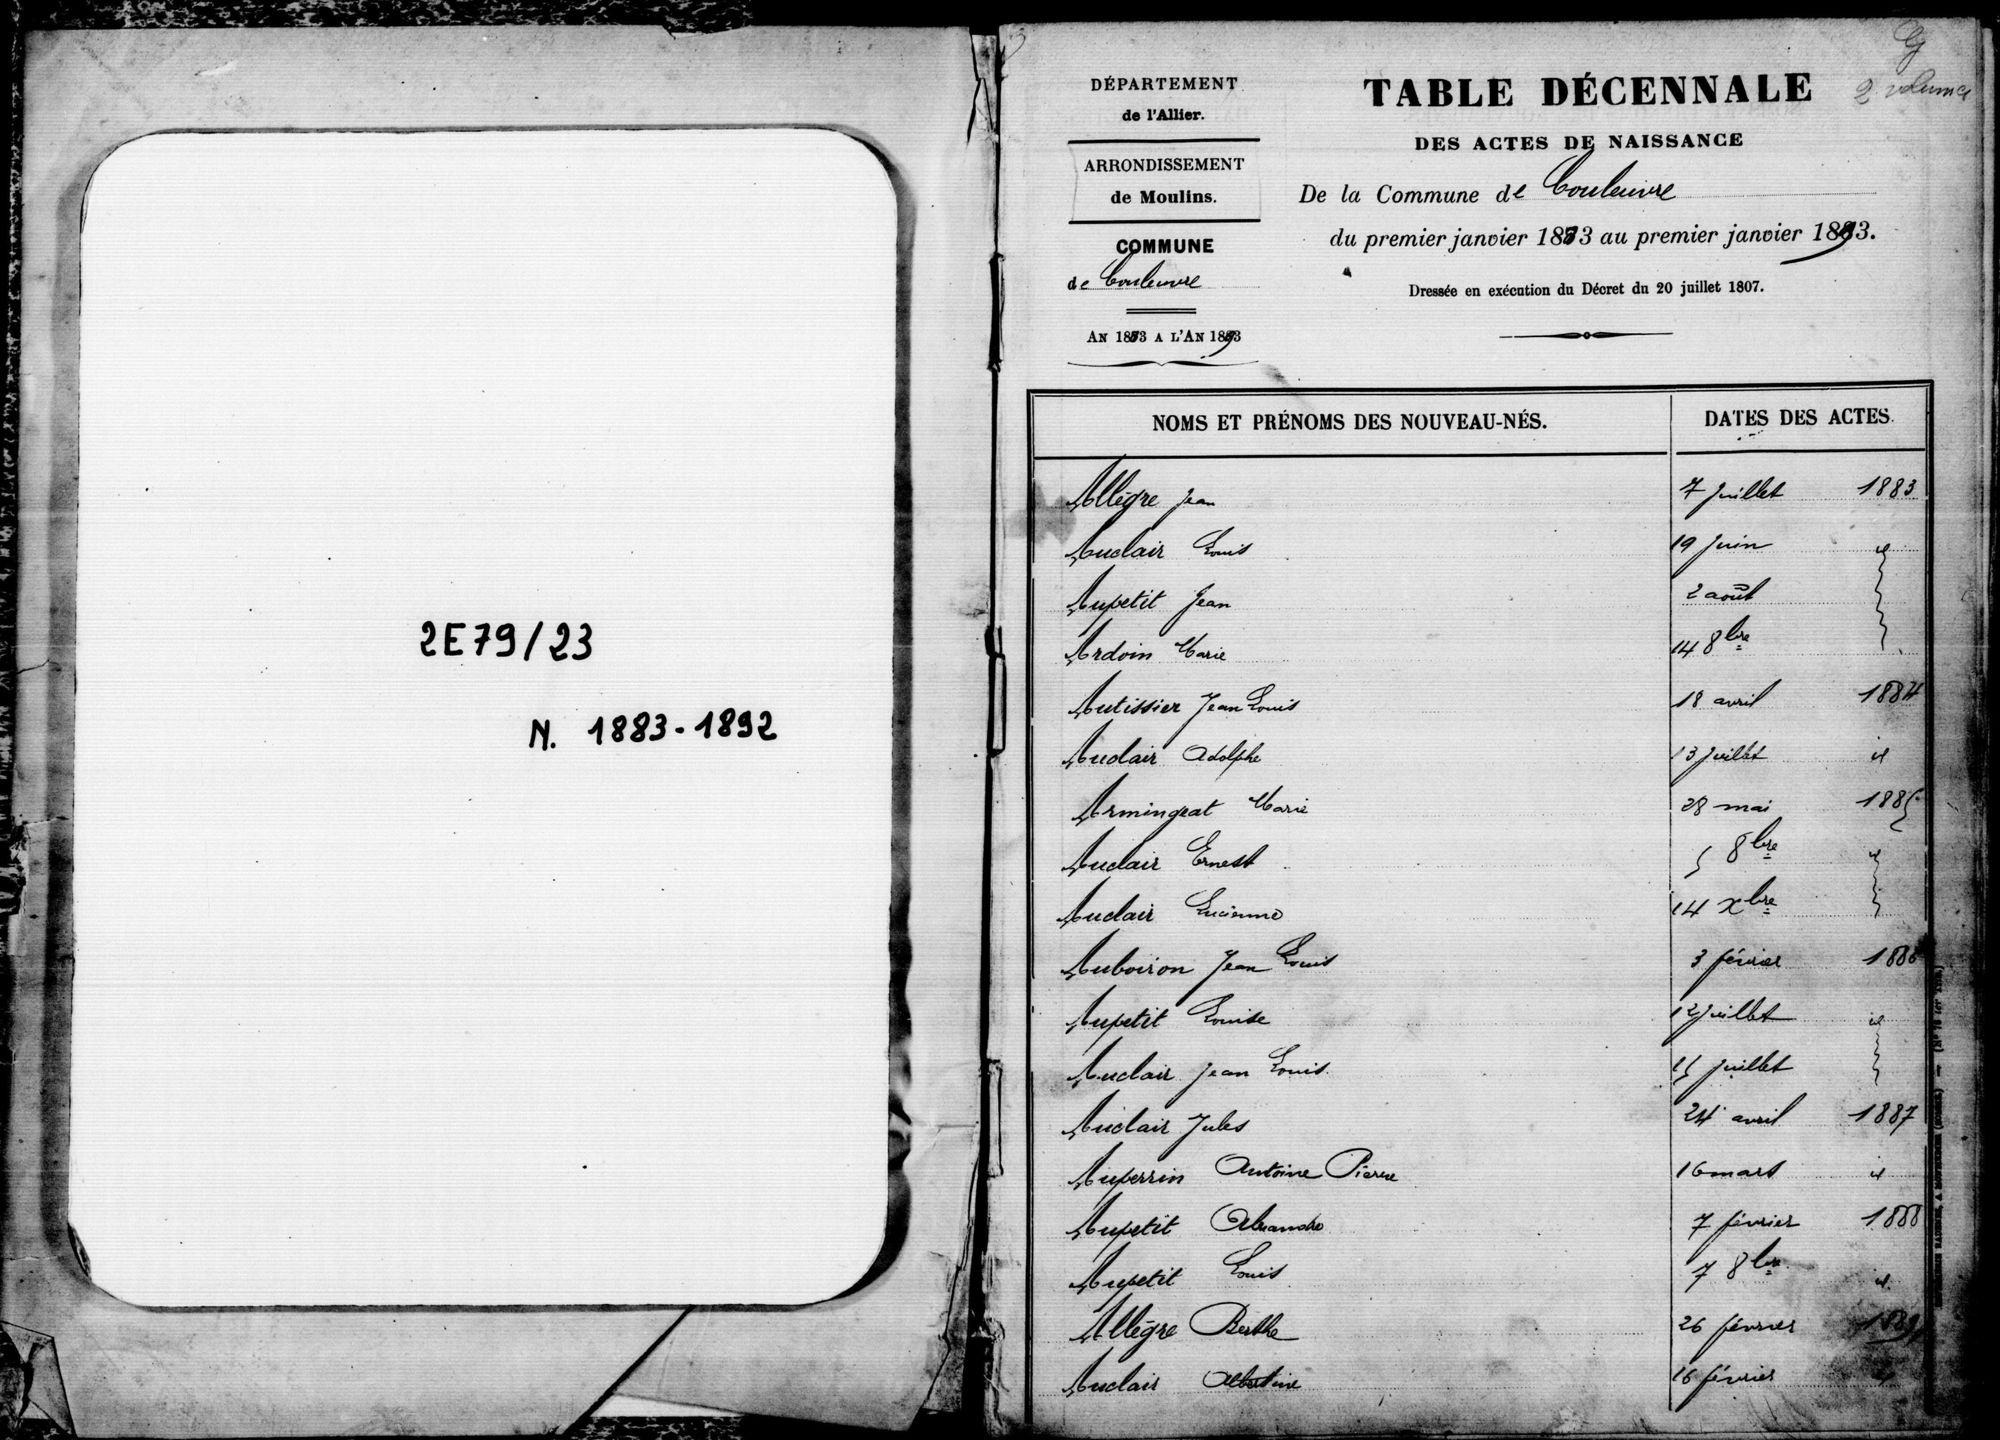 2E79/23
N. 1883-1892
2 volumes
DÉPARTEMENT
de l'Allier.
ARRONDISSEMENT
de Moulins.
COMMUNE
de Couleuvre
AN 1883 A L'AN 1893
TABLE DÉCENNALE
DES ACTES DE NAISSANCE
De la Commune de Couleuvre
du premier janvier 1883 au premier janvier 1893.
Dressée en exécution du Décret du 20 juillet 1807.
NOMS ET PRÉNOMS DES NOUVEAU-NÉS. DATES DES ACTES.
Allègre Jean 7 Juillet 1883
Auclair Louis 19 Juin id
Aupetit Jean 2 août
Ardoin Marie 14 8bre
Autissier Jean Louis 18 avril 1884
Auclair Adolphe 13 Juillet id
Armingeat Marie 28 mai 1885
Auclair Ernest 5 8bre id
Auclair Lucienne 14 xbre
Auboiron Jean Louis 3 février 1886
Aupetit Louise 12 Juillet id
Auclair Jean Louis 15 Juillet
Auclair Jules 24 avril 1887
Auperrin Antoine Pierre 16 mars id
Aupetit Alexandre 7 février 1888
Aupetit Louis 7 8bre id
Allègre Berthe 26 février 1889
Auclair Albertine 16 février id